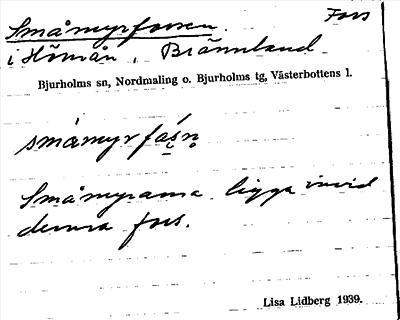 Småmyrforsen. Fors
i Hörnån, Brännland
Bjurholms sn, Nordmaling o. Bjurholms tg, Västerbottens l.
småmyrfåsn
Småmyrarna ligga invid
denna fors.
Lisa Lidberg 1939.